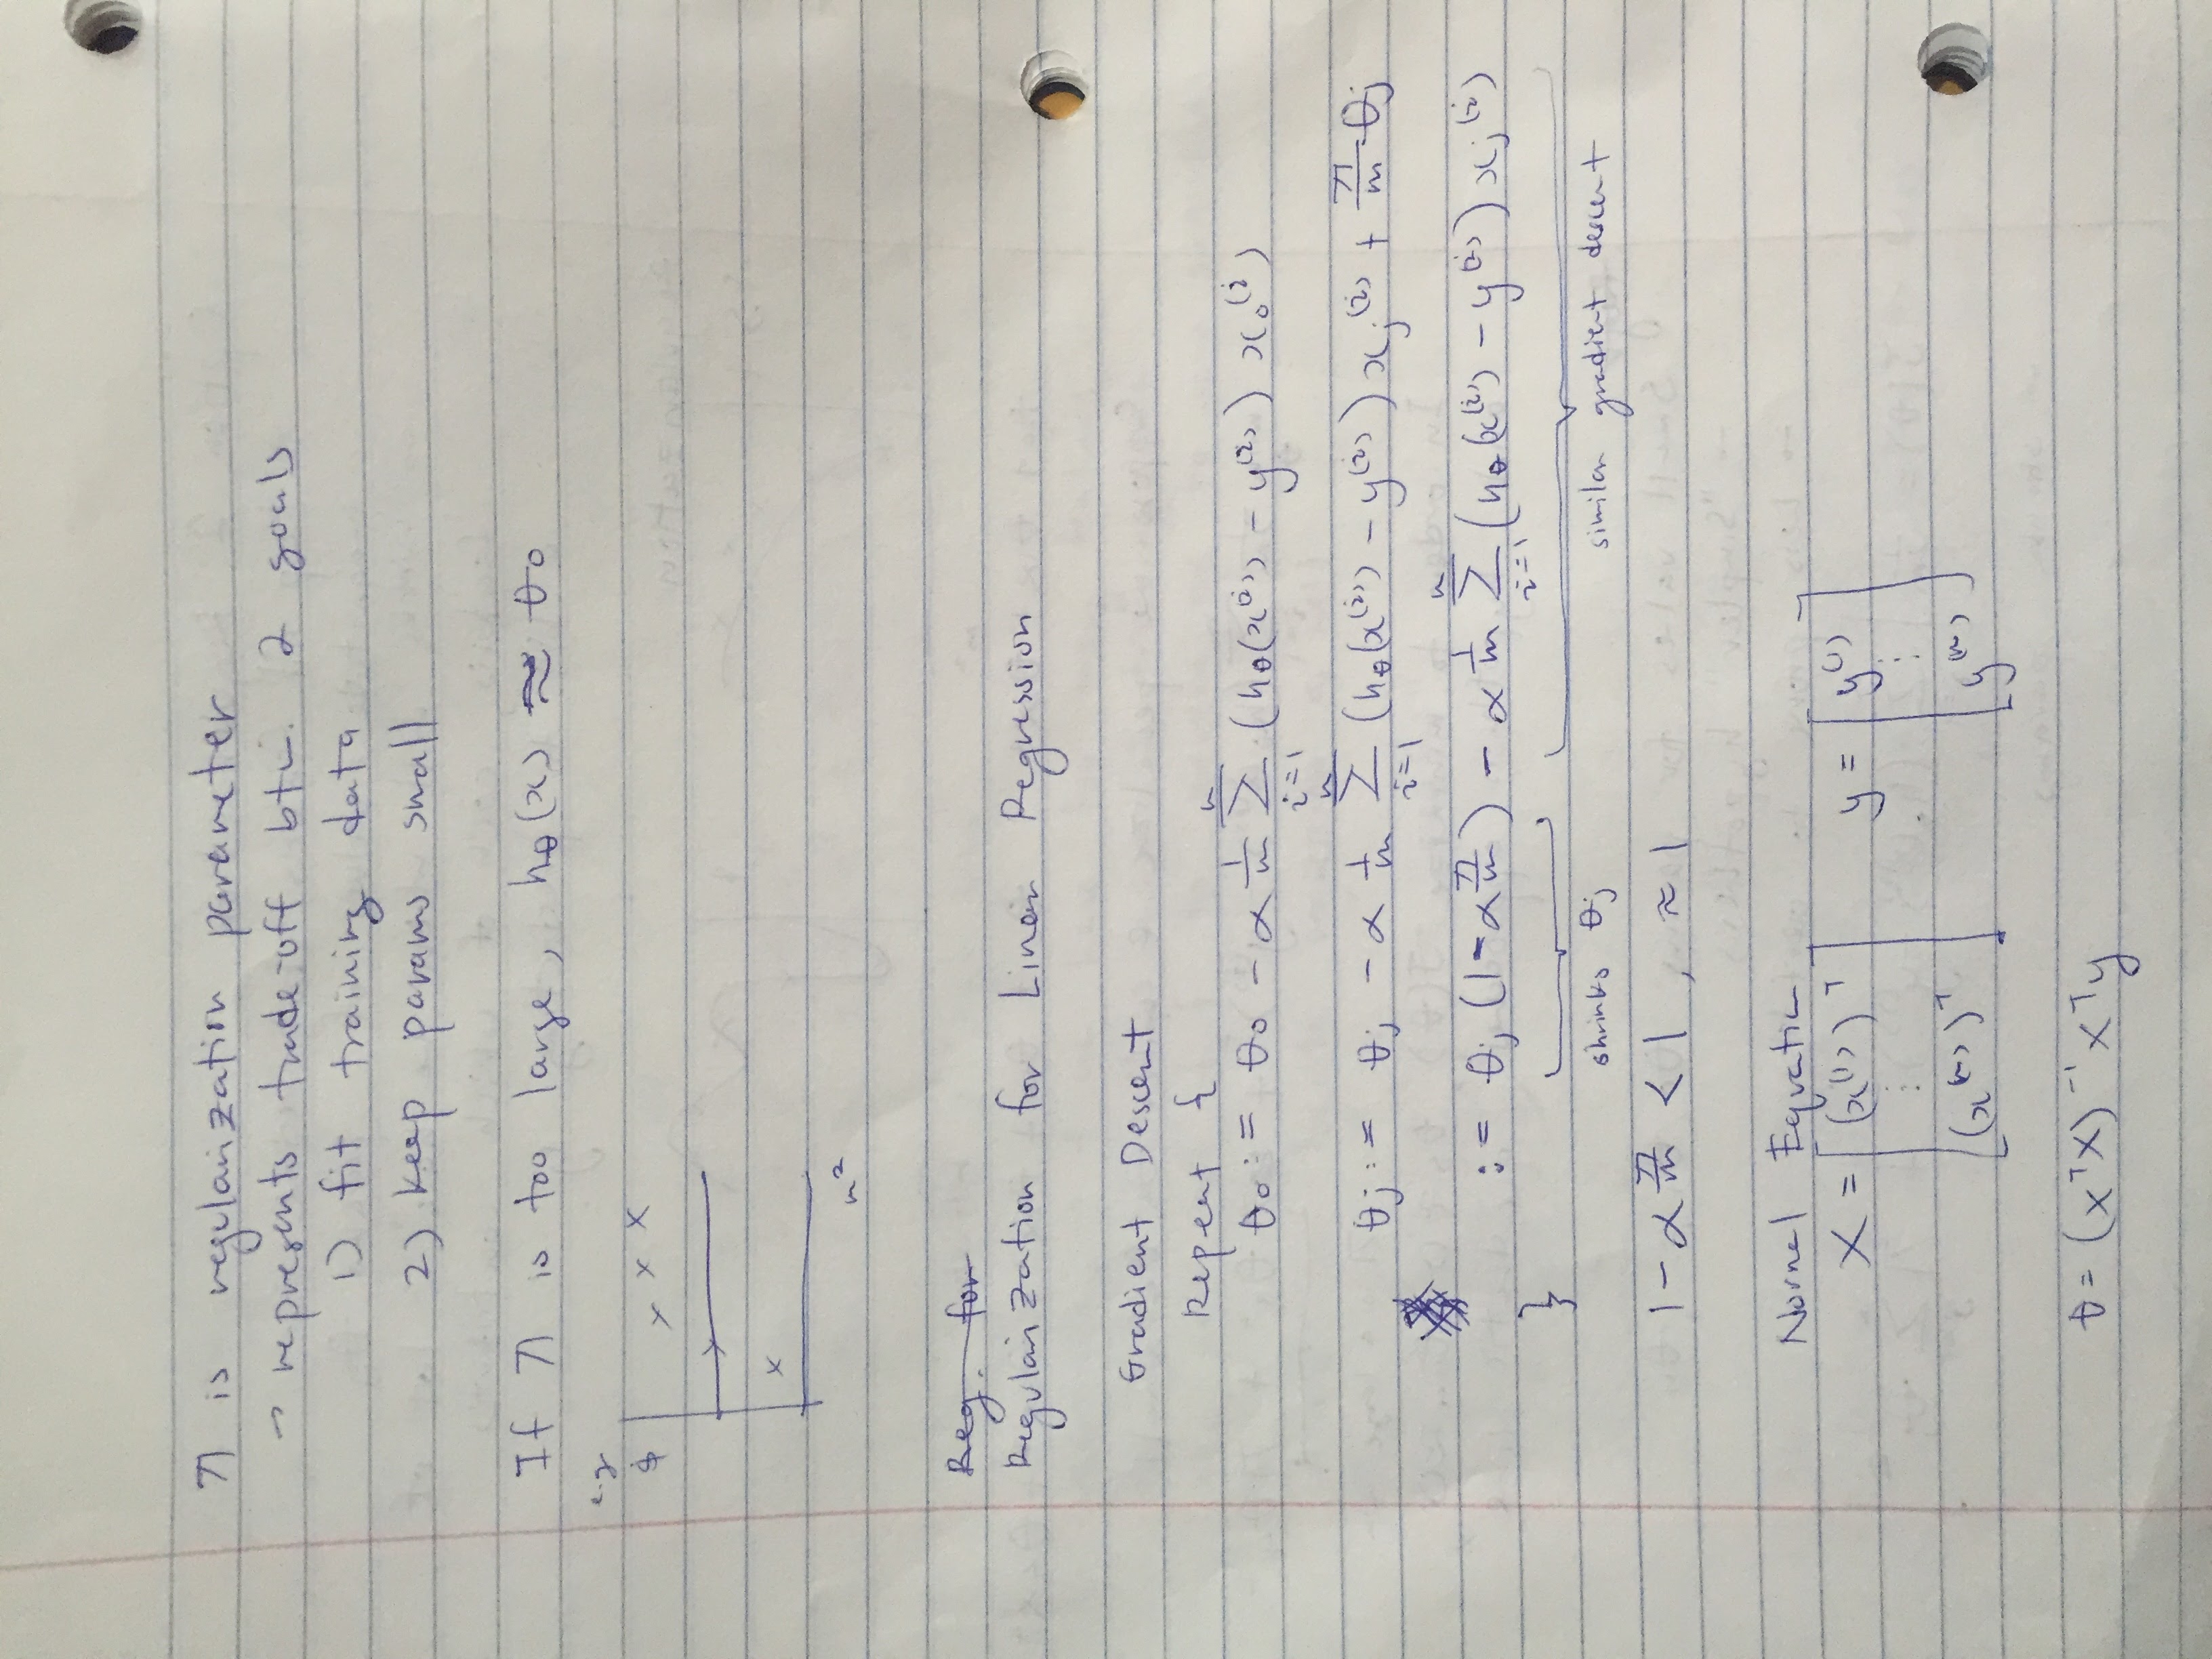 λ is regularization parameter
→ represents trade-off btw. 2 goals
1) fit training data
2) keep params small
If λ is too large, hθ(x) ≈ θ0
e.g
$
m²
Reg. for
Regularization for Linear Regression
Gradient Descent
Repeat {
θ0 := θ0 - α 1/m Σ_{i=1}^{m} (hθ(x^(i)) - y^(i)) x0^(i)
θj := θj - α 1/m Σ_{i=1}^{m} (hθ(x^(i)) - y^(i)) xj^(i) + λ/m θj
:= θj (1 - α λ/m) - α 1/m Σ_{i=1}^{m} (hθ(x^(i)) - y^(i)) xj^(i)
}
shrinks θj similar gradient descent
1 - α λ/m < 1, ≈ 1
Normal Equation
X = [(x^(1))^T ⋮ (x^(m))^T] y = [y^(1) ⋮ y^(m)]
θ = (X^T X)^-1 X^T y